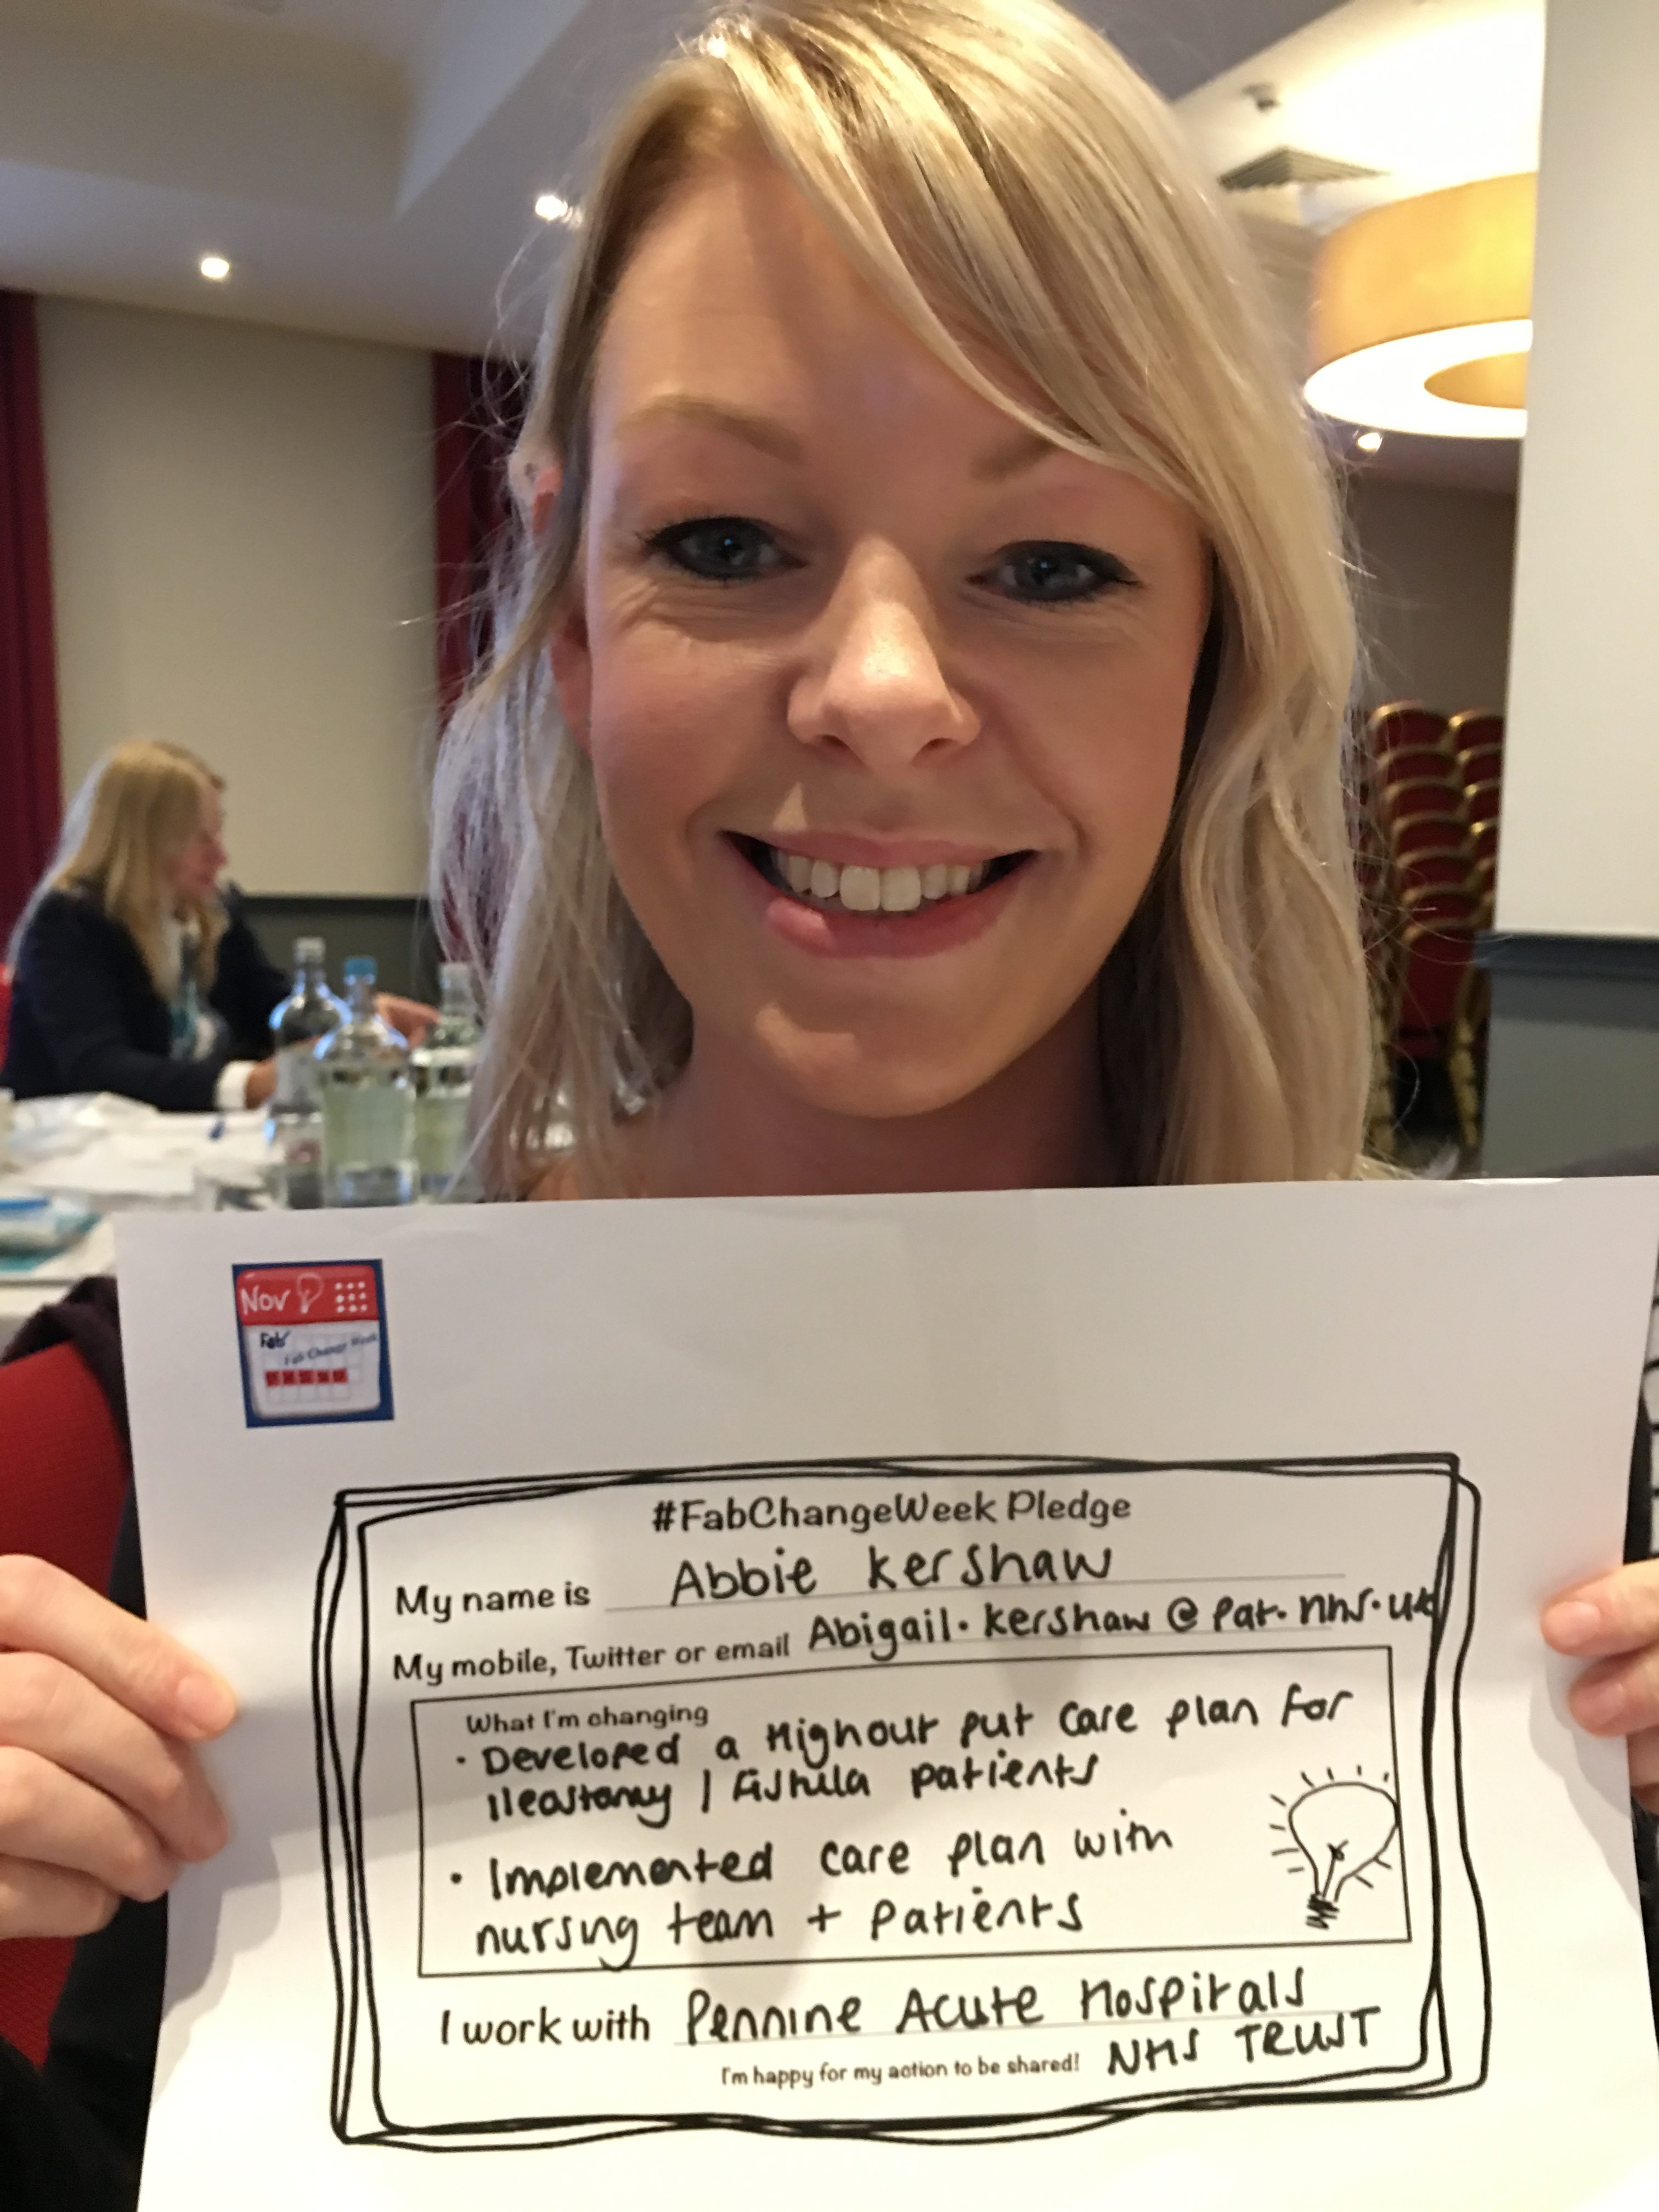 Nov
Fab
Fab Change Week
#FabChangeWeek Pledge
My name is Abbie Kershaw
My mobile, Twitter or email Abigail.kershaw@pat.nhs.uk
What I'm changing
• Developed a Highour put care plan for
Ileostomy / Fistula patients
• Implemented care plan with
nursing team + patients
I work with Pennine Acute Hospitals
I'm happy for my action to be shared! NHS TRUST